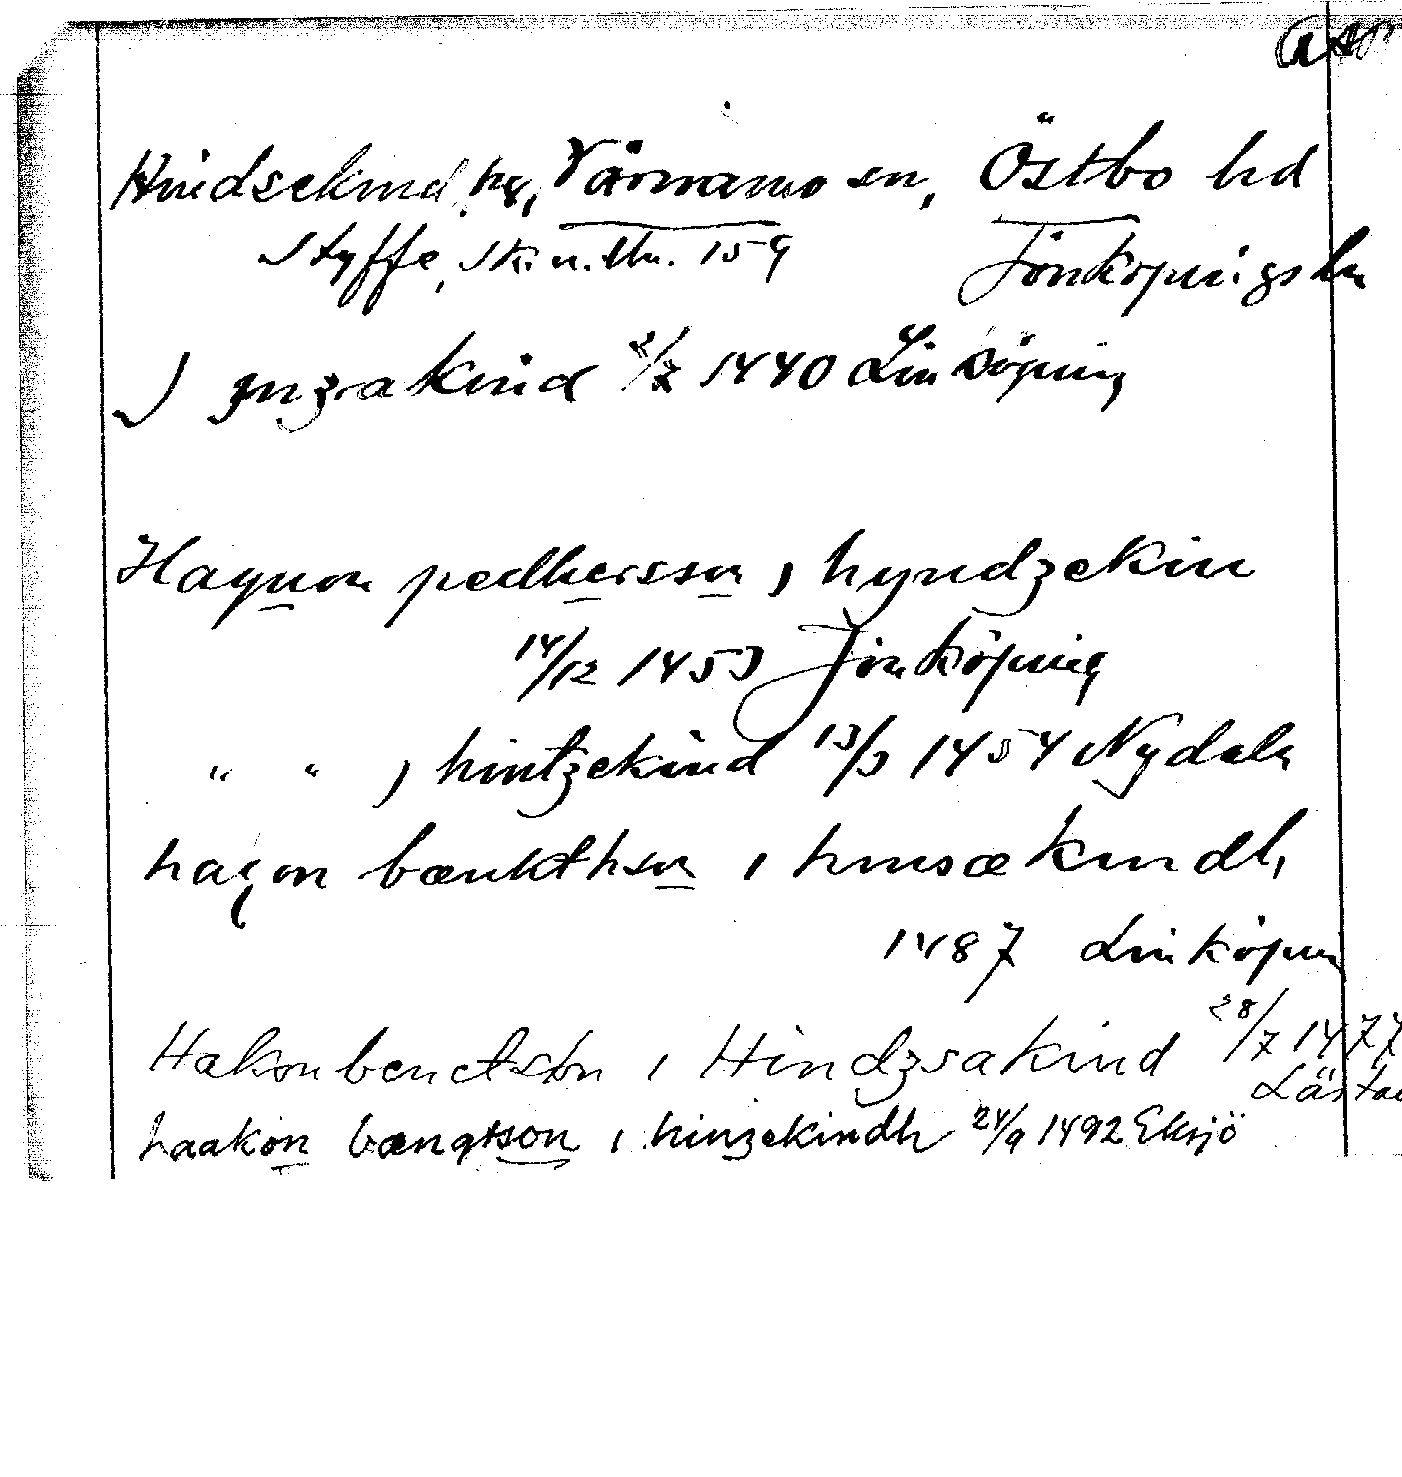 Hindsekind, by, Värnamo sn, Östbo hd
Styffe, Sk. u. Un. 159 Jönköpings län
J ynzakind 1440 Linköping
Haquon pedhersson, hyndzekin
14/12 1453 Jönköping
" " , hintzekind 13/3 1454 Nydala
haqon bænkthson, hinsækindh,
1487 Linköpin
Hakon benctsön, Hindzsakind 28/7 1477
haakon bængtsson, hinzekindh 24/9 1492 Eksjö